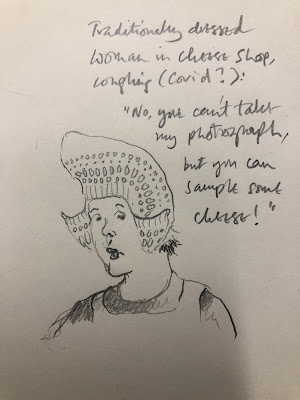 Traditionally dressed
woman in cheese shop,
coughing (Covid?):
"No, you can't take
my photograph,
but you can
sample some
cheese!"